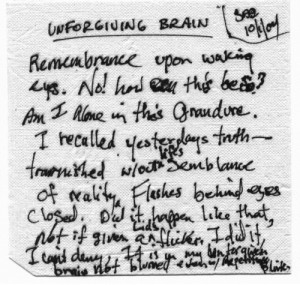 UNFORGIVING BRAIN
10/1/04
Remembrance upon waking
eyes. No! how can this be?
Am I Alone in this Grandure.
I recalled yesterdays truth—
tarnished w/out lifes semblance
of reality. Flashes behind eyes
closed. Did it happen like that,
Not if given a lids flicker. I did it,
I cant deny, It is in my unforgiven
brain not blurred even w/ repetitive
blinks